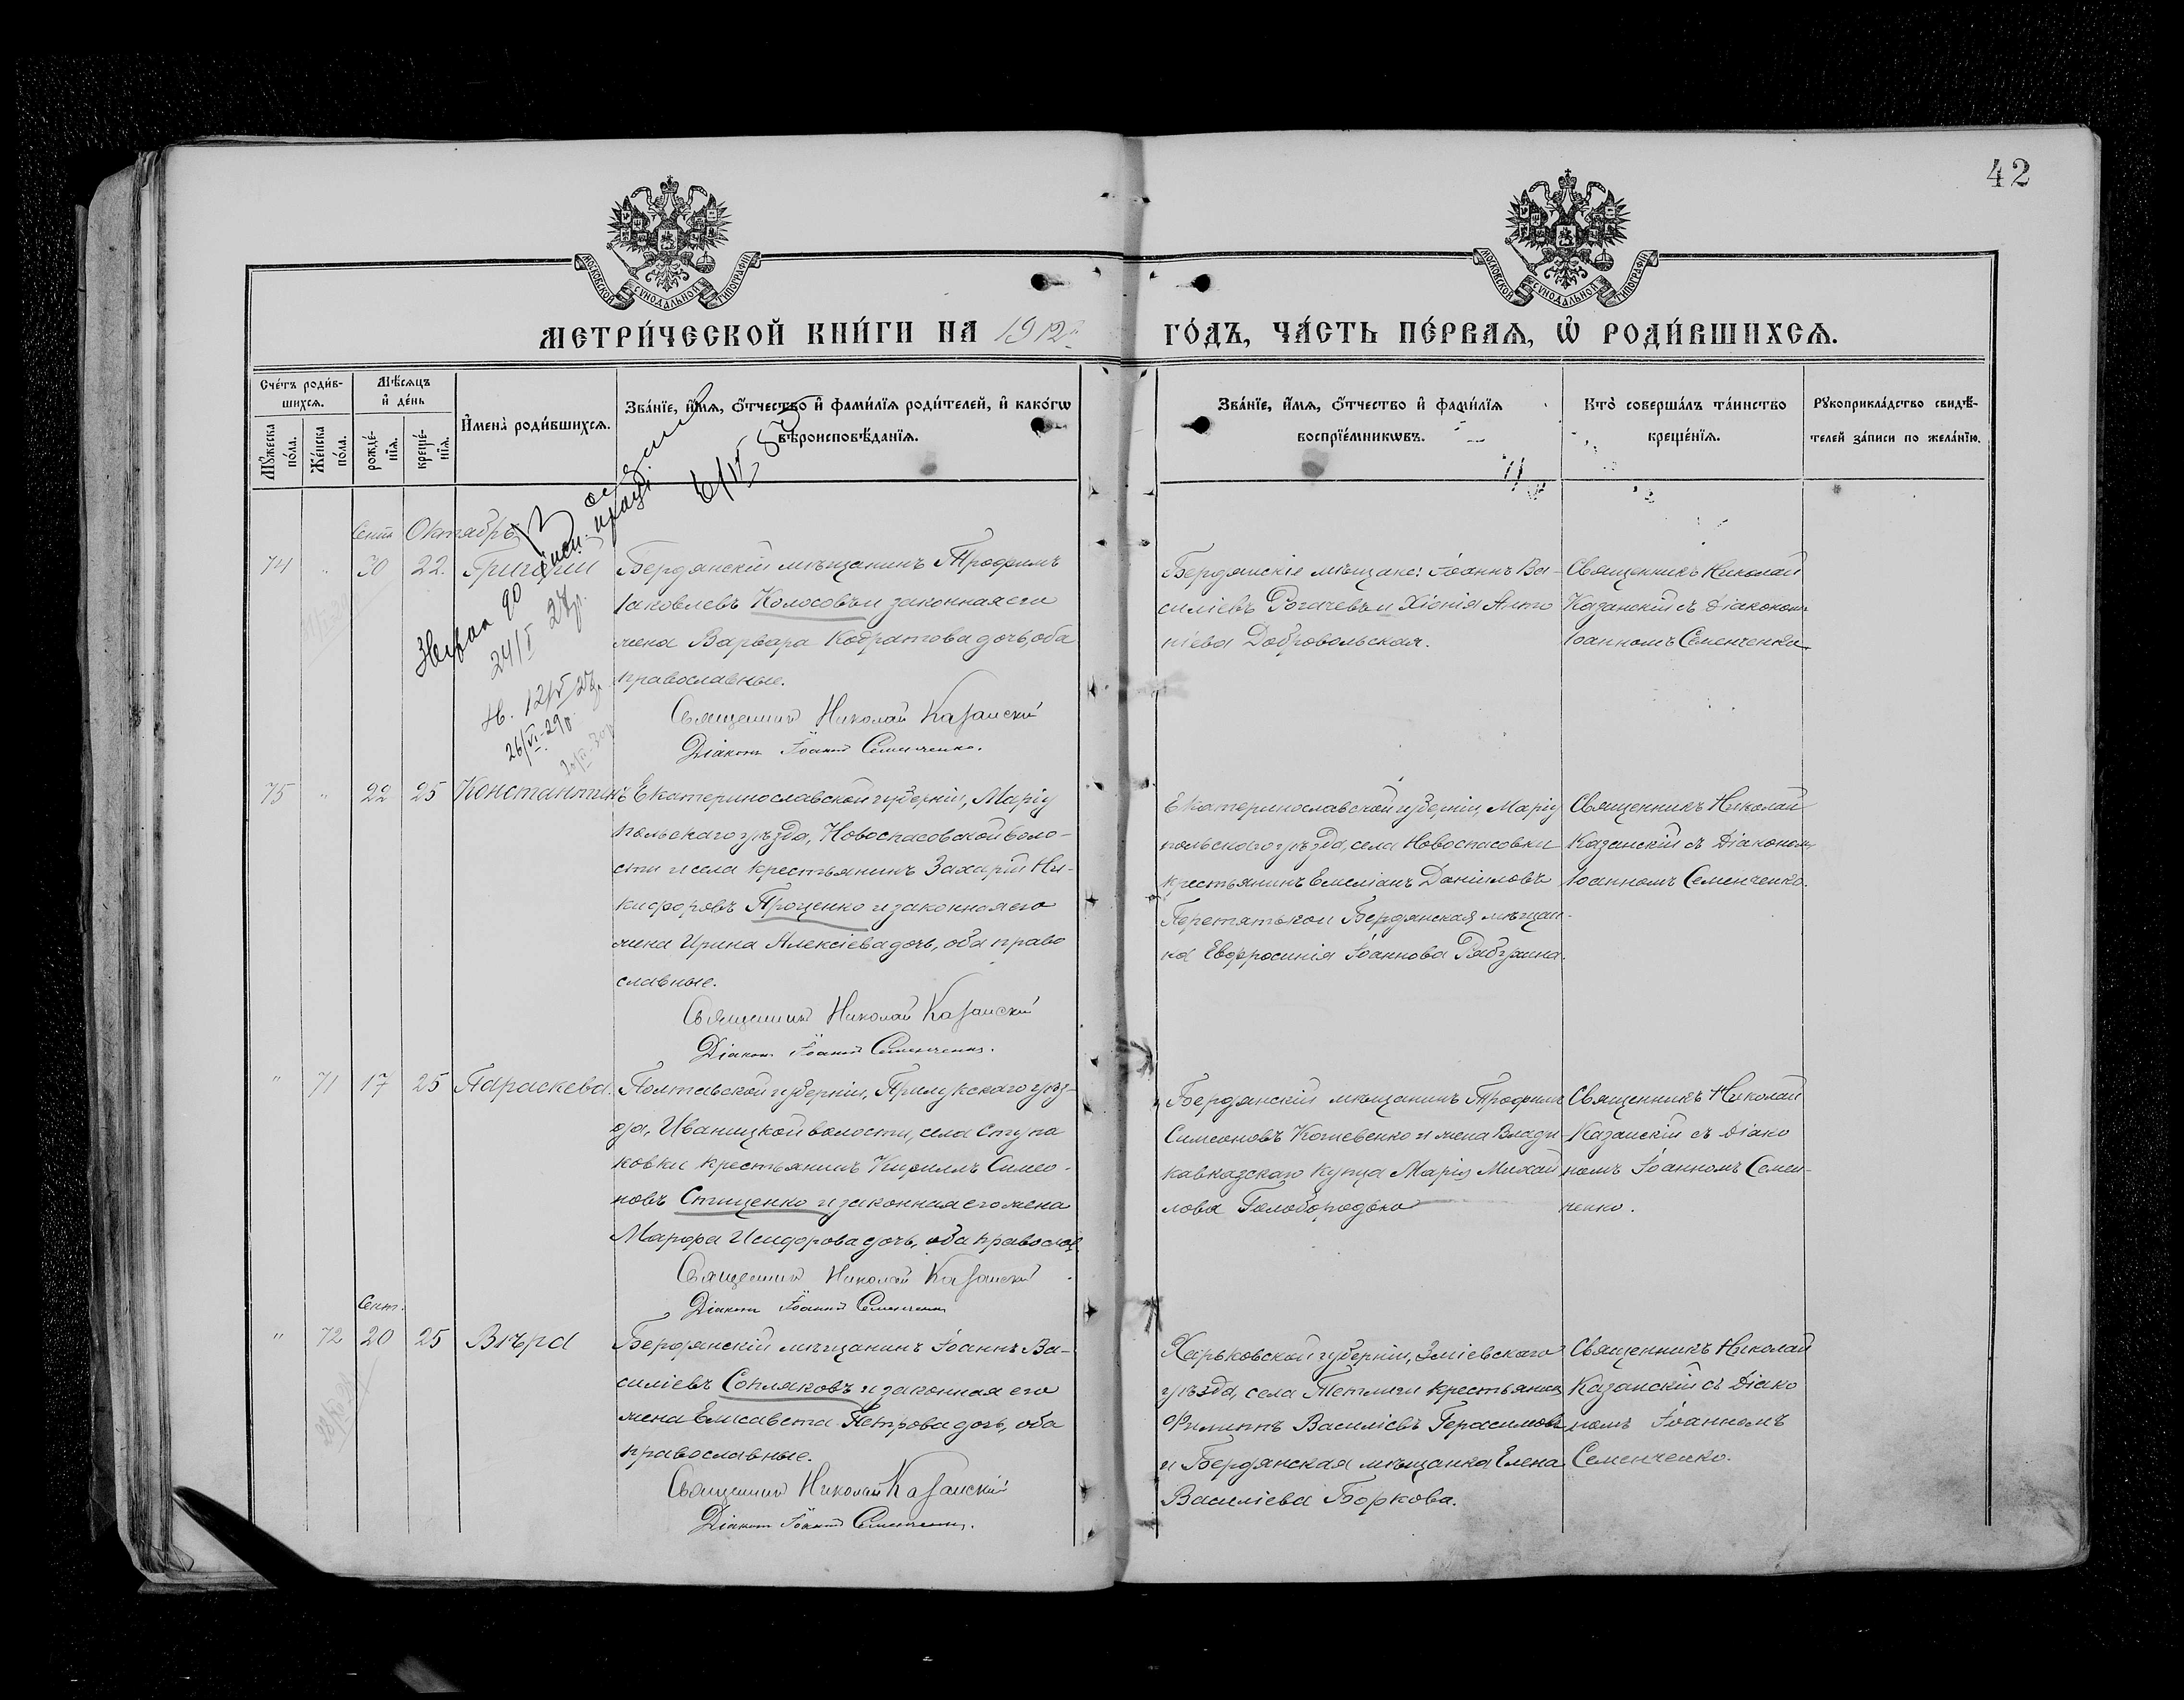 42
МОСКОВСКОЙ СѴНОДАЛЬНОЙ ТИПОГРАФІИ
МОСКОВСКОЙ СѴНОДАЛЬНОЙ ТИПОГРАФІИ
МЕТРИ́ЧЕСКОЙ КНИ́ГИ НА 1912 ГО́ДЪ, ЧА́СТЬ ПЕ́РВАѦ, Ѽ РОДИ́ВШИХСѦ.
Сче́тъ роди́в-
шихсѧ.
Мꙋ́жеска по́ла.
Же́нска по́ла.
Мѣ́сѧцъ
и҆ де́нь
рожде́-
нїѧ.
креще́-
нїѧ.
И҆мена̀ роди́вшихсѧ.
Зва́нїе, и҆́мѧ, ѻ҆́тчество и҆ фами́лїѧ роди́телей, и҆ како́гѡ
вѣроисповѣ́данїѧ.
Зва́нїе, и҆́мѧ, ѻ҆́тчество и҆ фами́лїѧ
воспрїе́мникѡвъ.
Кто̀ соверша́лъ та́инство
креще́нїѧ.
Рꙋкоприкла́дство свидѣ́-
телей за́писи по жела́нїю.
Сент Октябрь
74 " 30 22. Григорій
Бердянскій мѣщанинъ Трофимъ
Іаковлевъ Колосовъ и законная его
жена Варвара Кодратова дочь, оба
православные.
Священникъ Николай Казанскій
Діаконъ Іоаннъ Семенченко.
Бердянскіе мѣщане: Іоаннъ Ва-
силіевъ Рогачевъ и Хіонія Анто
ніева Добровольская.
Священникъ Николай
Казанскій съ діакономъ
Іоанномъ Семенченко.
24/I 27г.
Н. 12/V 27г.
26/VI-29г.
6/IV
75 " 22 25 Константинъ
Екатеринославской губерніи, Маріу
польскаго уѣзда, Новоспасовской воло-
сти и села крестьянинъ Захарій Ни-
кифоровъ Проценко и законная его
жена Ирина Алексіева дочь, оба право
славные.
Священникъ Николай Казанскій
Діаконъ Іоаннъ Семенченко.
Екатеринославской губерніи, Маріу
польскаго уѣзда, села Новоспасовки
крестьянинъ Емеліанъ Даніиловъ
Перетятько и Бердянская мѣщан-
ка Евфросинія Іоаннова
Священникъ Николай
Казанскій съ Діакономъ
Іоанномъ Семенченко.
" 71 17 25 Параскева.
Полтавской губерніи, Прилукскаго уѣз-
да, Иваницкой волости, села Ступа
ковки крестьянинъ Кириллъ Симео-
новъ Стиценко и законная его жена
Марфа Исидорова дочь, оба правослов.
Священникъ Николай Казанскій
Діаконъ Іоаннъ Семенченко
Бердянскій мѣщанинъ Трофимъ
Симеоновъ Кошевенко и жена Влади
кавказскаго купца Марія Михаи
лова Голобородько
Священникъ Николай
Казанскій съ Діако
номъ Іоанномъ Семен-
ченко.
Сент.
" 72 20 25 Вѣра
Бердянскій мѣщанинъ Іоаннъ Ва-
силіевъ Сопляковъ и законная его
жена Елисавета Петрова дочь, оба
православные.
Священникъ Николай Казанскій
Діаконъ Іоаннъ Семенченко.
Харьковской губерніи, Зміевскаго
уѣзда, села Тетлеги крестьянинъ
Филиппъ Василіевъ Герасимовъ
и Бердянская мѣщанка Елена
Василіева Боркова.
Священникъ Николай
Казанскій съ Діако
номъ Іоанномъ
Семенченко.